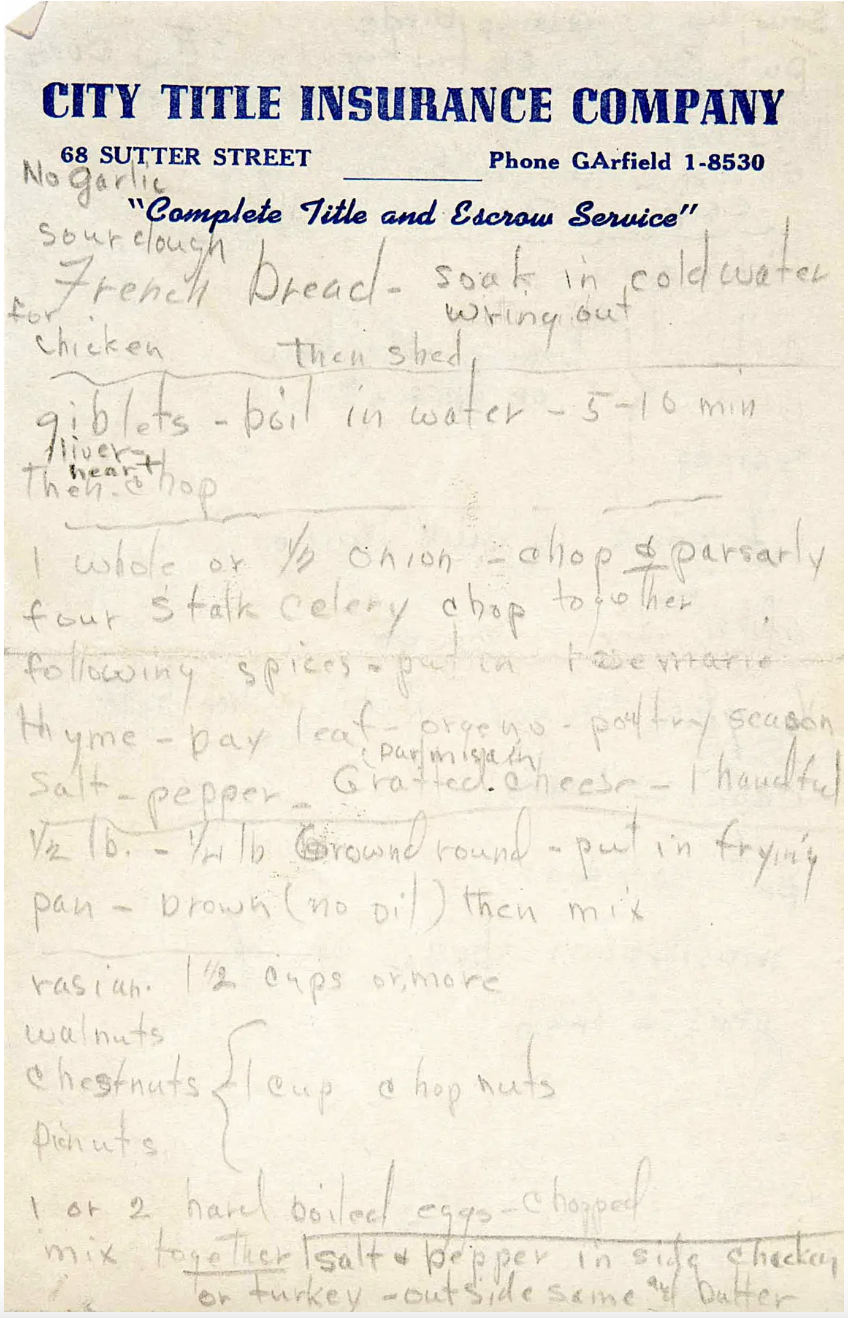 CITY TITLE INSURANCE COMPANY
68 SUTTER STREET Phone GArfield 1-8530
No garlic
"Complete Title and Escrow Service"
sourdough
French bread - soak in cold water
for wring out
chicken then shed
giblets - boil in water - 5-10 min
liver-
heart
then chop
1 whole or 1/2 onion - chop & parsarly
four stalk celery chop together
following spices - put in rosemarie
thyme - bay leaf - orgeno - poultry season
(parmisain)
salt - pepper - Gratted cheese - 1 handful
1/2 lb. - 1/4 lb Ground round - put in frying
pan - brown (no oil) then mix
rasian. 1 1/2 cups or more
walnuts
chestnuts { 1 cup chop nuts
pinuts
1 or 2 hard boiled eggs - chopped
mix together salt & pepper in side
or turkey - outside same butter